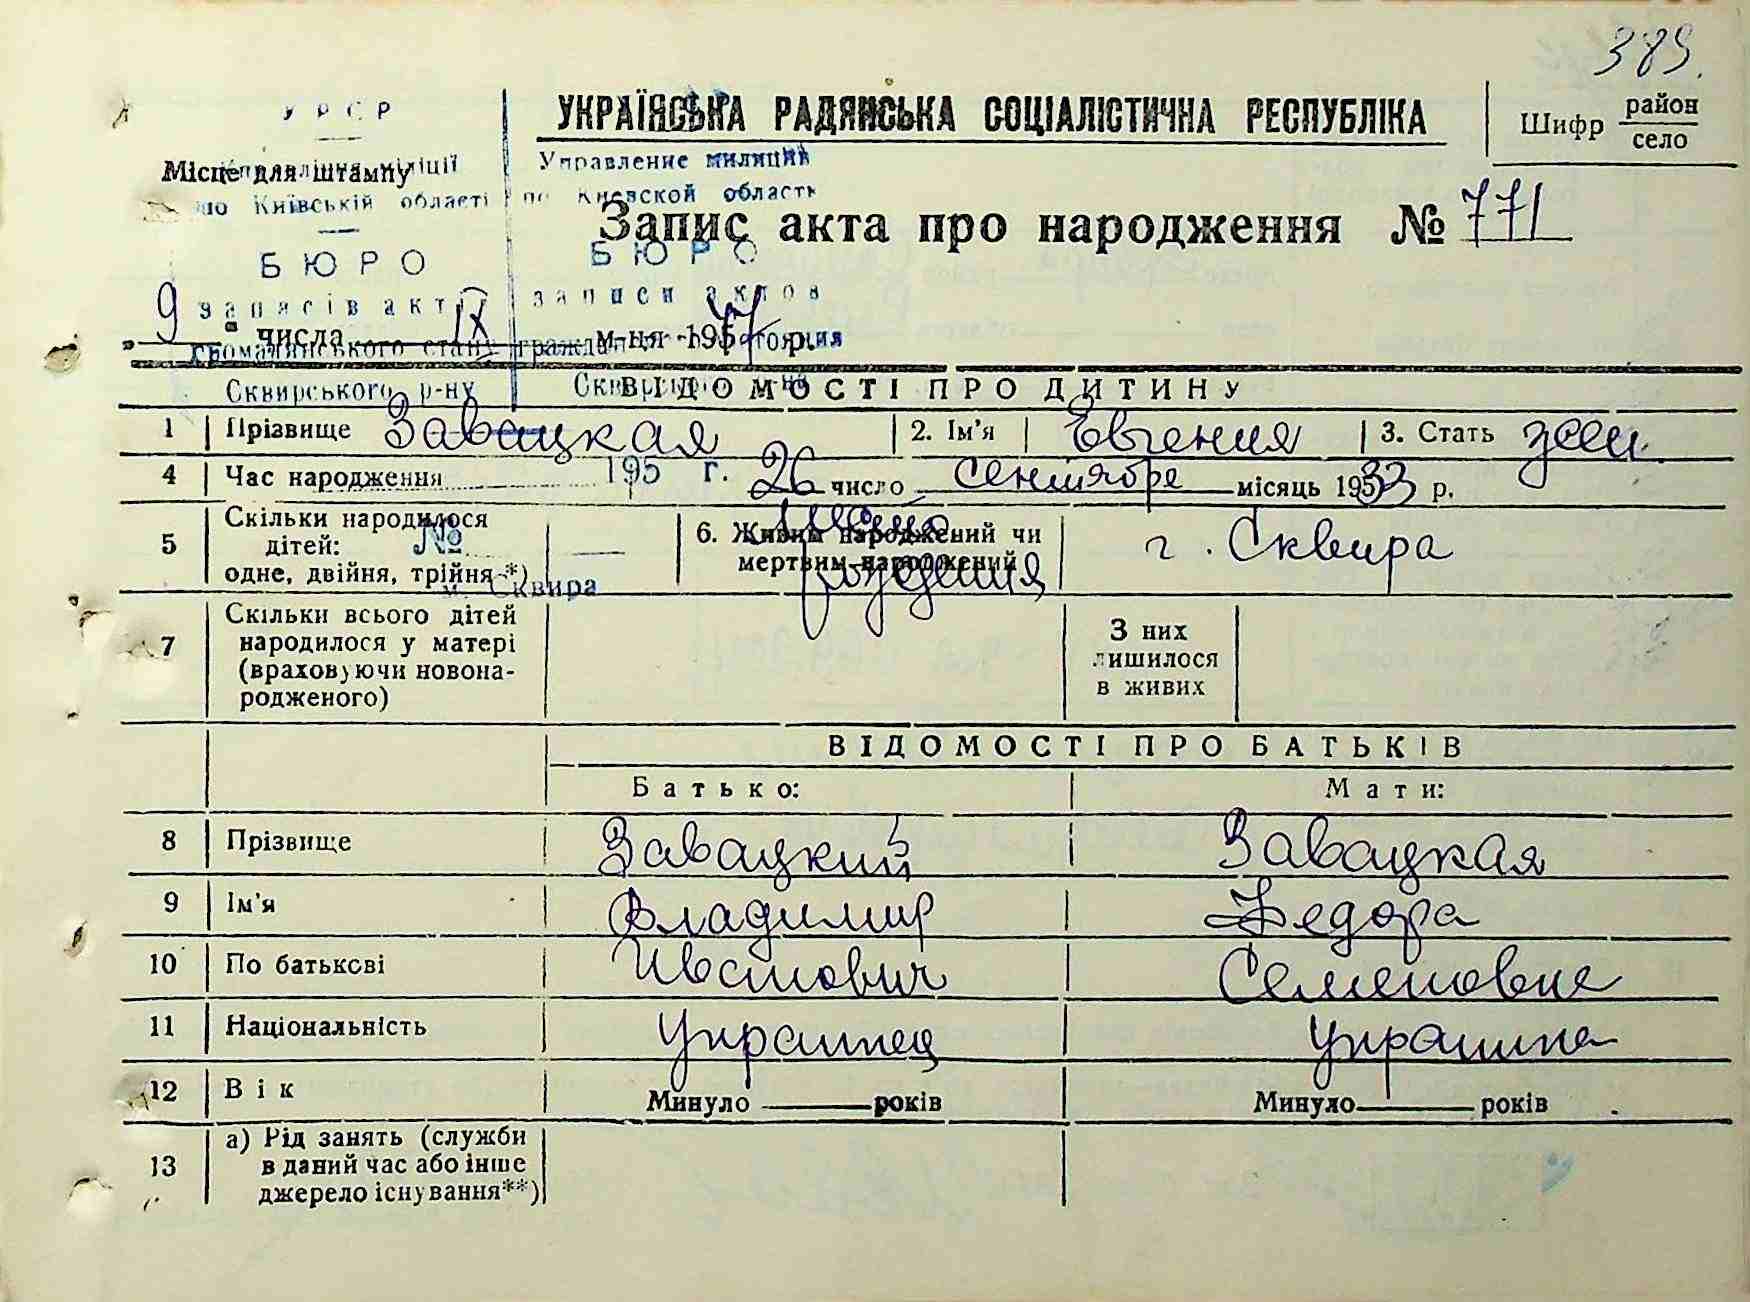 389.
УКРАЇНСЬКА РАДЯНСЬКА СОЦІАЛІСТИЧНА РЕСПУБЛІКА
Шифр район село
У Р С Р
Місце для штампу
Управління міліції
по Київській області
Управление милиции
по Киевской области
Запис акта про народження № 771
БЮРО
записів актів
громадянського стану
Сквирського р-ну
БЮРО
записи актов
гражданского состояния
„9" числа IX м-ня 1957 р.
ВІДОМОСТІ ПРО ДИТИНУ
1 Прізвище Завацкая 2. Ім'я Евгения 3. Стать жен.
4 Час народження 195 г. 26 число сентября місяць 1933 р.
5 Скільки народилося дітей: одне, двійня, трійня *) — 6. Живим народжений чи мертвим народжений г. Сквира
№
м. Сквира
место
рождения
7 Скільки всього дітей народилося у матері (враховуючи новонародженого) З них лишилося в живих
ВІДОМОСТІ ПРО БАТЬКІВ
Батько: Мати:
8 Прізвище Завацкий Завацкая
9 Ім'я Владимир Федора
10 По батькові Иванович Семеновна
11 Національність Украинец Украинка
12 Вік Минуло ——— років Минуло ——— років
13 а) Рід занять (служби
в даний час або інше
джерело існування**)